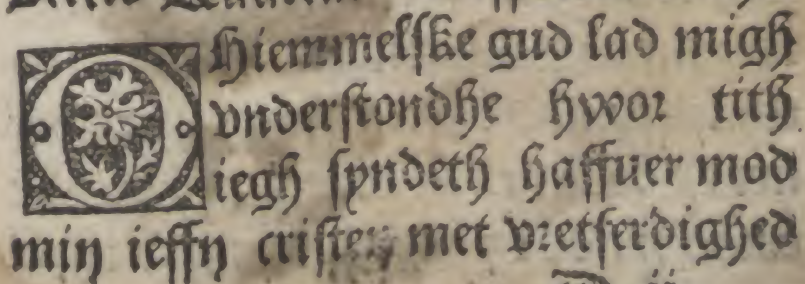 O Hiemmelske gud lad migh
vnderstondhe hwor tith
iegh syndeth haffuer mod
min ieffn cristen met vretferdighed